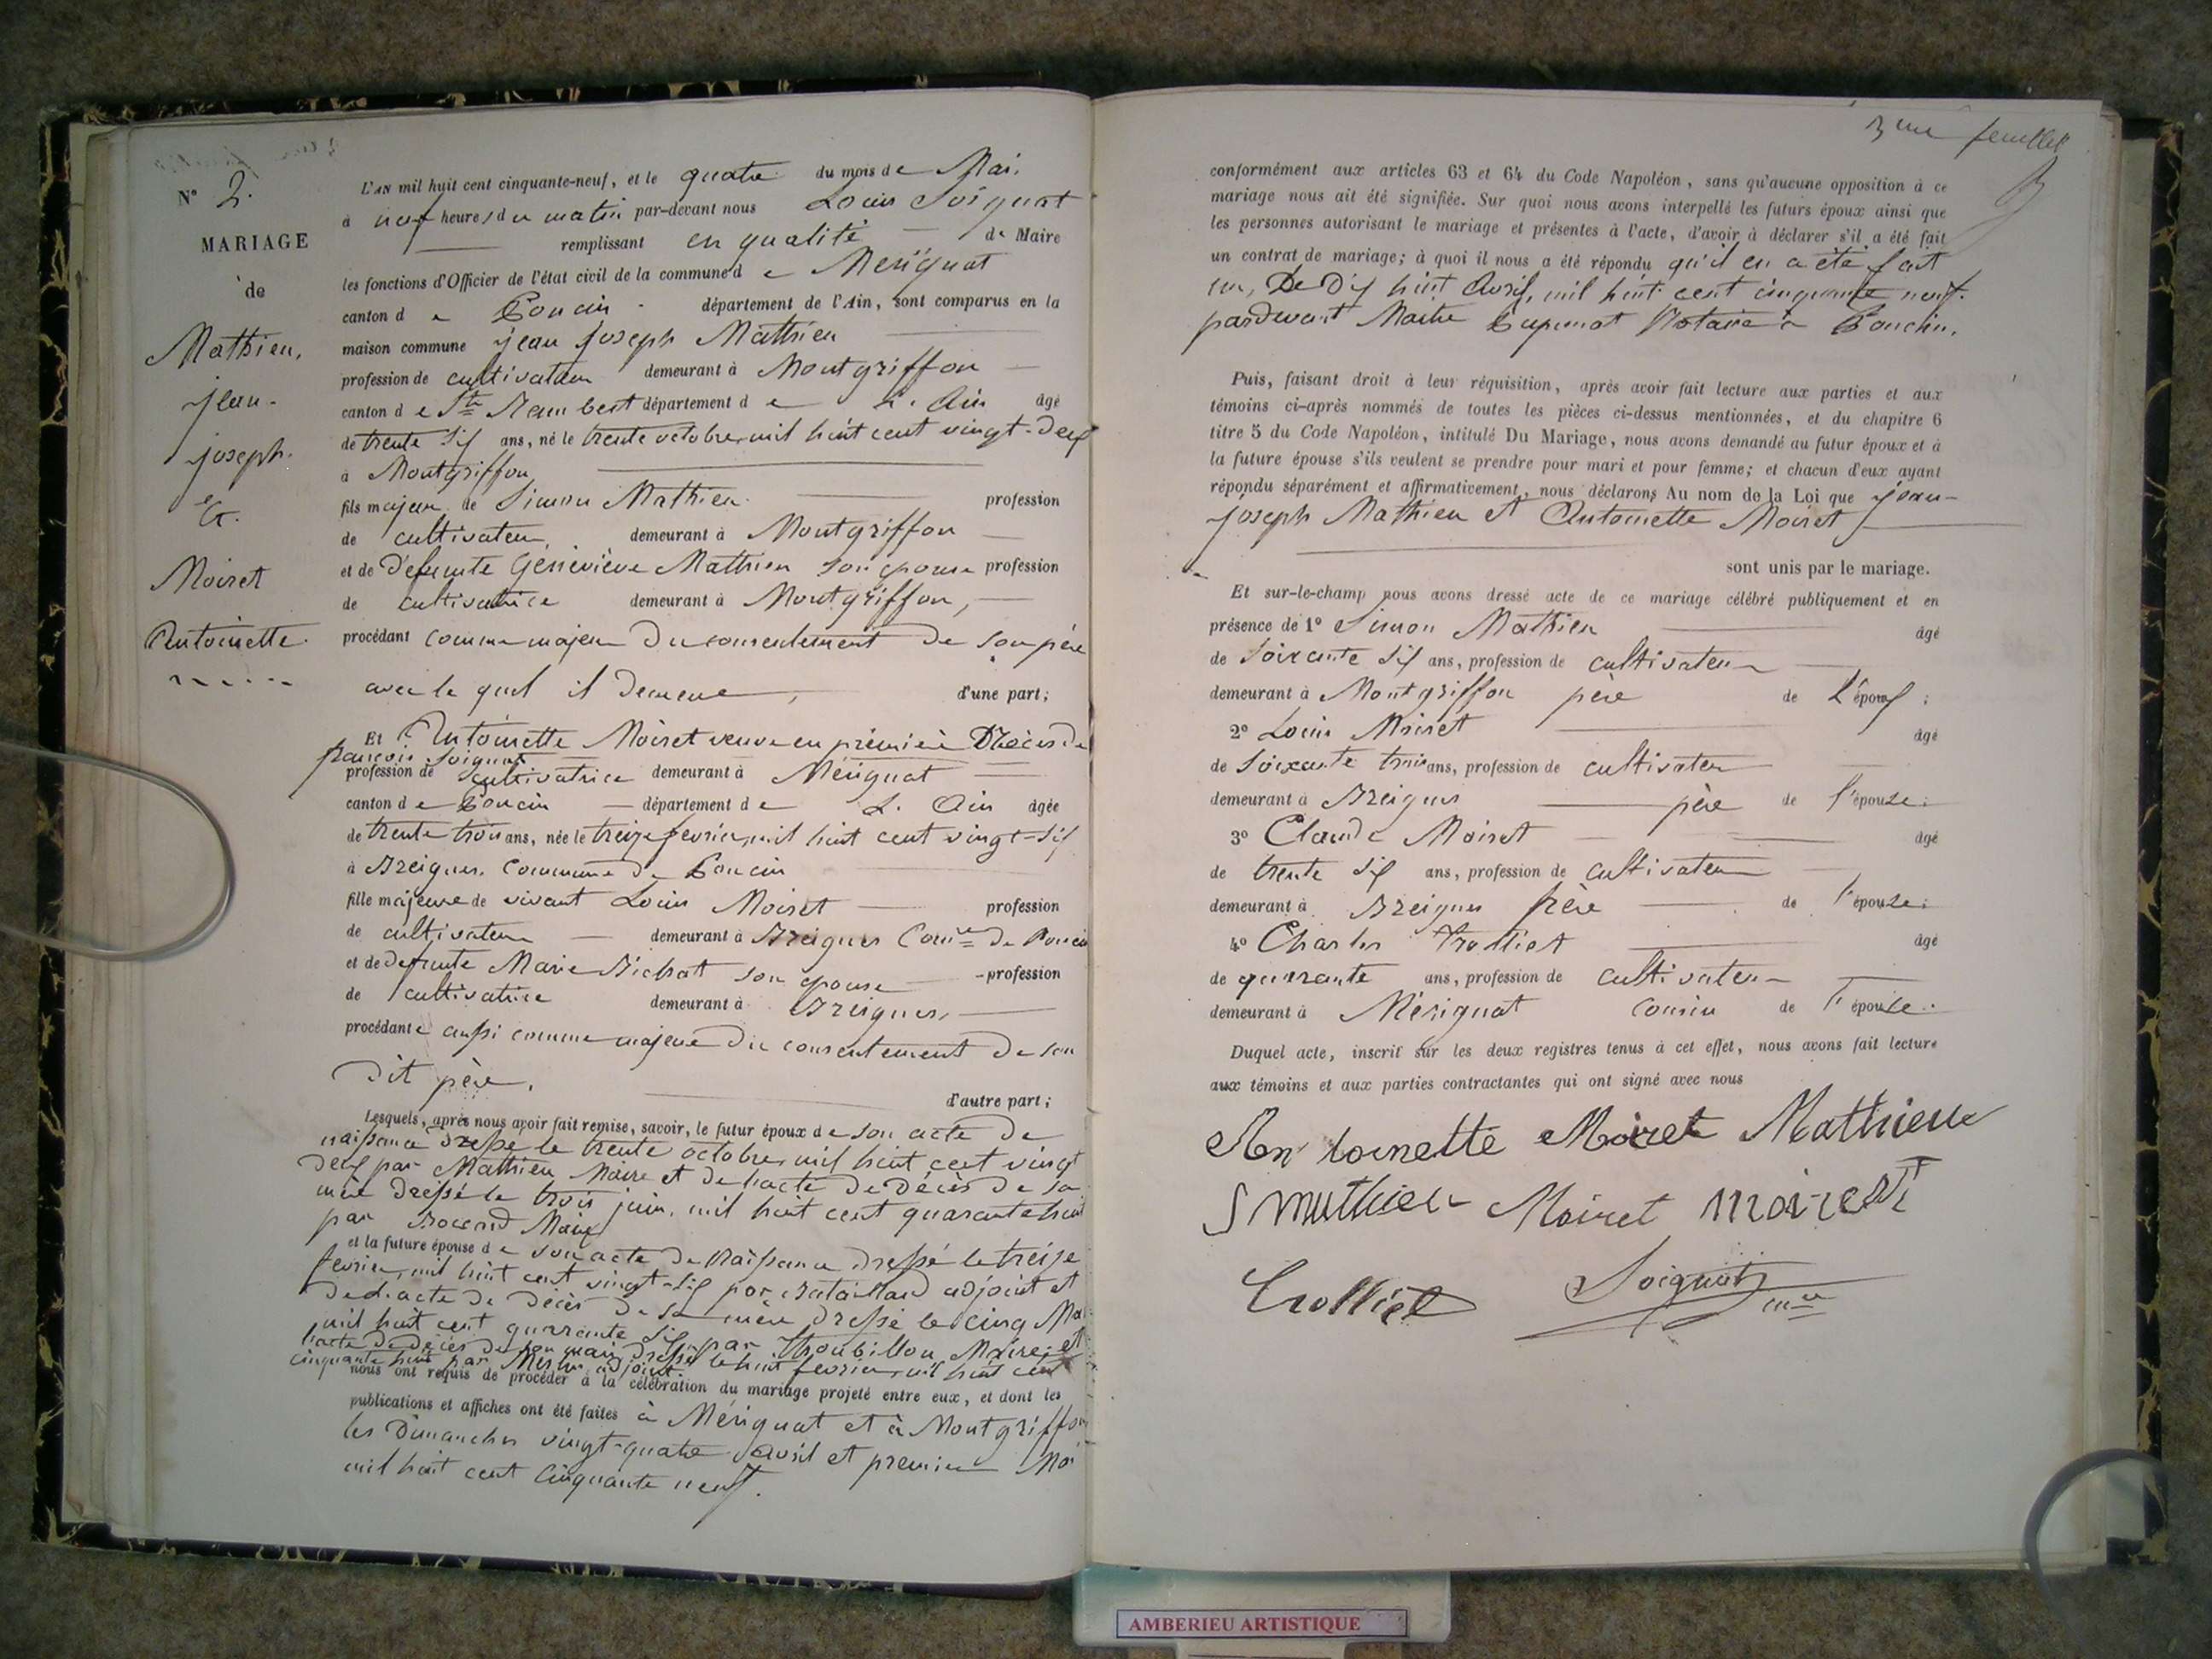 N° 2.
MARIAGE
de
Mathieu,
jean-
joseph.
Et.
Moiret
Antoinette.
L'AN mil huit cent cinquante-neuf, et le quatre du mois de Mai,
à neuf heures du matin par-devant nous Louis Soignat
remplissant en qualité de Maire
les fonctions d'Officier de l'état civil de la commune de Mérignat
canton de Poncin département de l'Ain, sont comparus en la
maison commune jean joseph Mathieu
profession de cultivateur demeurant à Montgriffon
canton de St Rambert département de L. Ain âgé
de trente six ans, né le trente octobre, mil huit cent vingt-deux
à Montgriffon
fils majeur de Simon Mathieu profession
de cultivateur, demeurant à Montgriffon
et de défunte Geneviève Mathieu son épouse profession
de cultivatrice demeurant à Montgriffon,
procédant comme majeur du consentement de son père
avec le quel il demeure, d'une part;
Et Antoinette Moiret veuve en première Noces de
françois Soignat
profession de cultivatrice demeurant à Mérignat
canton de Poncin département de L. Ain âgée
de trente trois ans, née le treize fevrier, mil huit cent vingt-six
à Breignes, Commune de Poncin
fille majeure de vivant Louis Moiret profession
de cultivateur demeurant à Breignes Com.ne de Poncin
et de defunte Marie Bichat son épouse profession
de cultivatrice demeurant à Breignes,
procédante aussi comme majeure du consentement de son
dit père, d'autre part;
Lesquels, après nous avoir fait remise, savoir, le futur époux de son acte de
naissance dressé le trente octobre, mil huit cent vingt
deux par Mathieu Maire et de l'acte de décès de sa
mère dressé le trois juin, mil huit cent quarante huit
par Maire
et la future épouse de son acte de Naissance dressé le treize
fevrier, mil huit cent vingt-six par adjoint et
de L'acte de décès de sa mère dressé le cinq Mai
mil huit cent quarante six par Maire, et
l'acte de décès de son mari dressé le huit fevrier, mil huit cent
cinquante huit par adjoint
nous ont requis de procéder à la célébration du mariage projeté entre eux, et dont les
publications et affiches ont été faites à Mérignat et à Montgriffon
les Dimanches vingt-quatre avril et premier Mai
mil huit cent cinquante neuf.
3eme feuillet
conformément aux articles 63 et 64 du Code Napoléon, sans qu'aucune opposition à ce
mariage nous ait été signifiée. Sur quoi nous avons interpellé les futurs époux ainsi que
les personnes autorisant le mariage et présentes à l'acte, d'avoir à déclarer s'il a été fait
un contrat de mariage; à quoi il nous a été répondu qu'il en a été fait
un, Le Dix huit Avril, mil huit cent cinquante neuf.
pardevant Maitre Notaire à Poncin.
Puis, faisant droit à leur réquisition, après avoir fait lecture aux parties et aux
témoins ci-après nommés de toutes les pièces ci-dessus mentionnées, et du chapitre 6
titre 5 du Code Napoléon, intitulé Du Mariage, nous avons demandé au futur époux et à
la future épouse s'ils veulent se prendre pour mari et pour femme; et chacun d'eux ayant
répondu séparément et affirmativement, nous déclarons Au nom de la Loi que jean-
joseph Mathieu et Antoinette Moiret
sont unis par le mariage.
Et sur-le-champ nous avons dressé acte de ce mariage célébré publiquement et en
présence de 1° Simon Mathieu âgé
de soixante six ans, profession de cultivateur
demeurant à Montgriffon père de L'époux;
2° Louis Moiret âgé
de soixante trois ans, profession de cultivateur
demeurant à Breignes père de l'épouse;
3° Claude Moiret âgé
de trente six ans, profession de cultivateur
demeurant à Breignes frère de l'épouse;
4° Charles Trolliet âgé
de quarrante ans, profession de cultivateur
demeurant à Mérignat cousin de l'épouse.
Duquel acte, inscrit sur les deux registres tenus à cet effet, nous avons fait lecture
aux témoins et aux parties contractantes qui ont signé avec nous
Antoinette Moiret Matthieu
S Mathieu Moiret moiret
Trolliet Soignat
AMBERIEU ARTISTIQUE